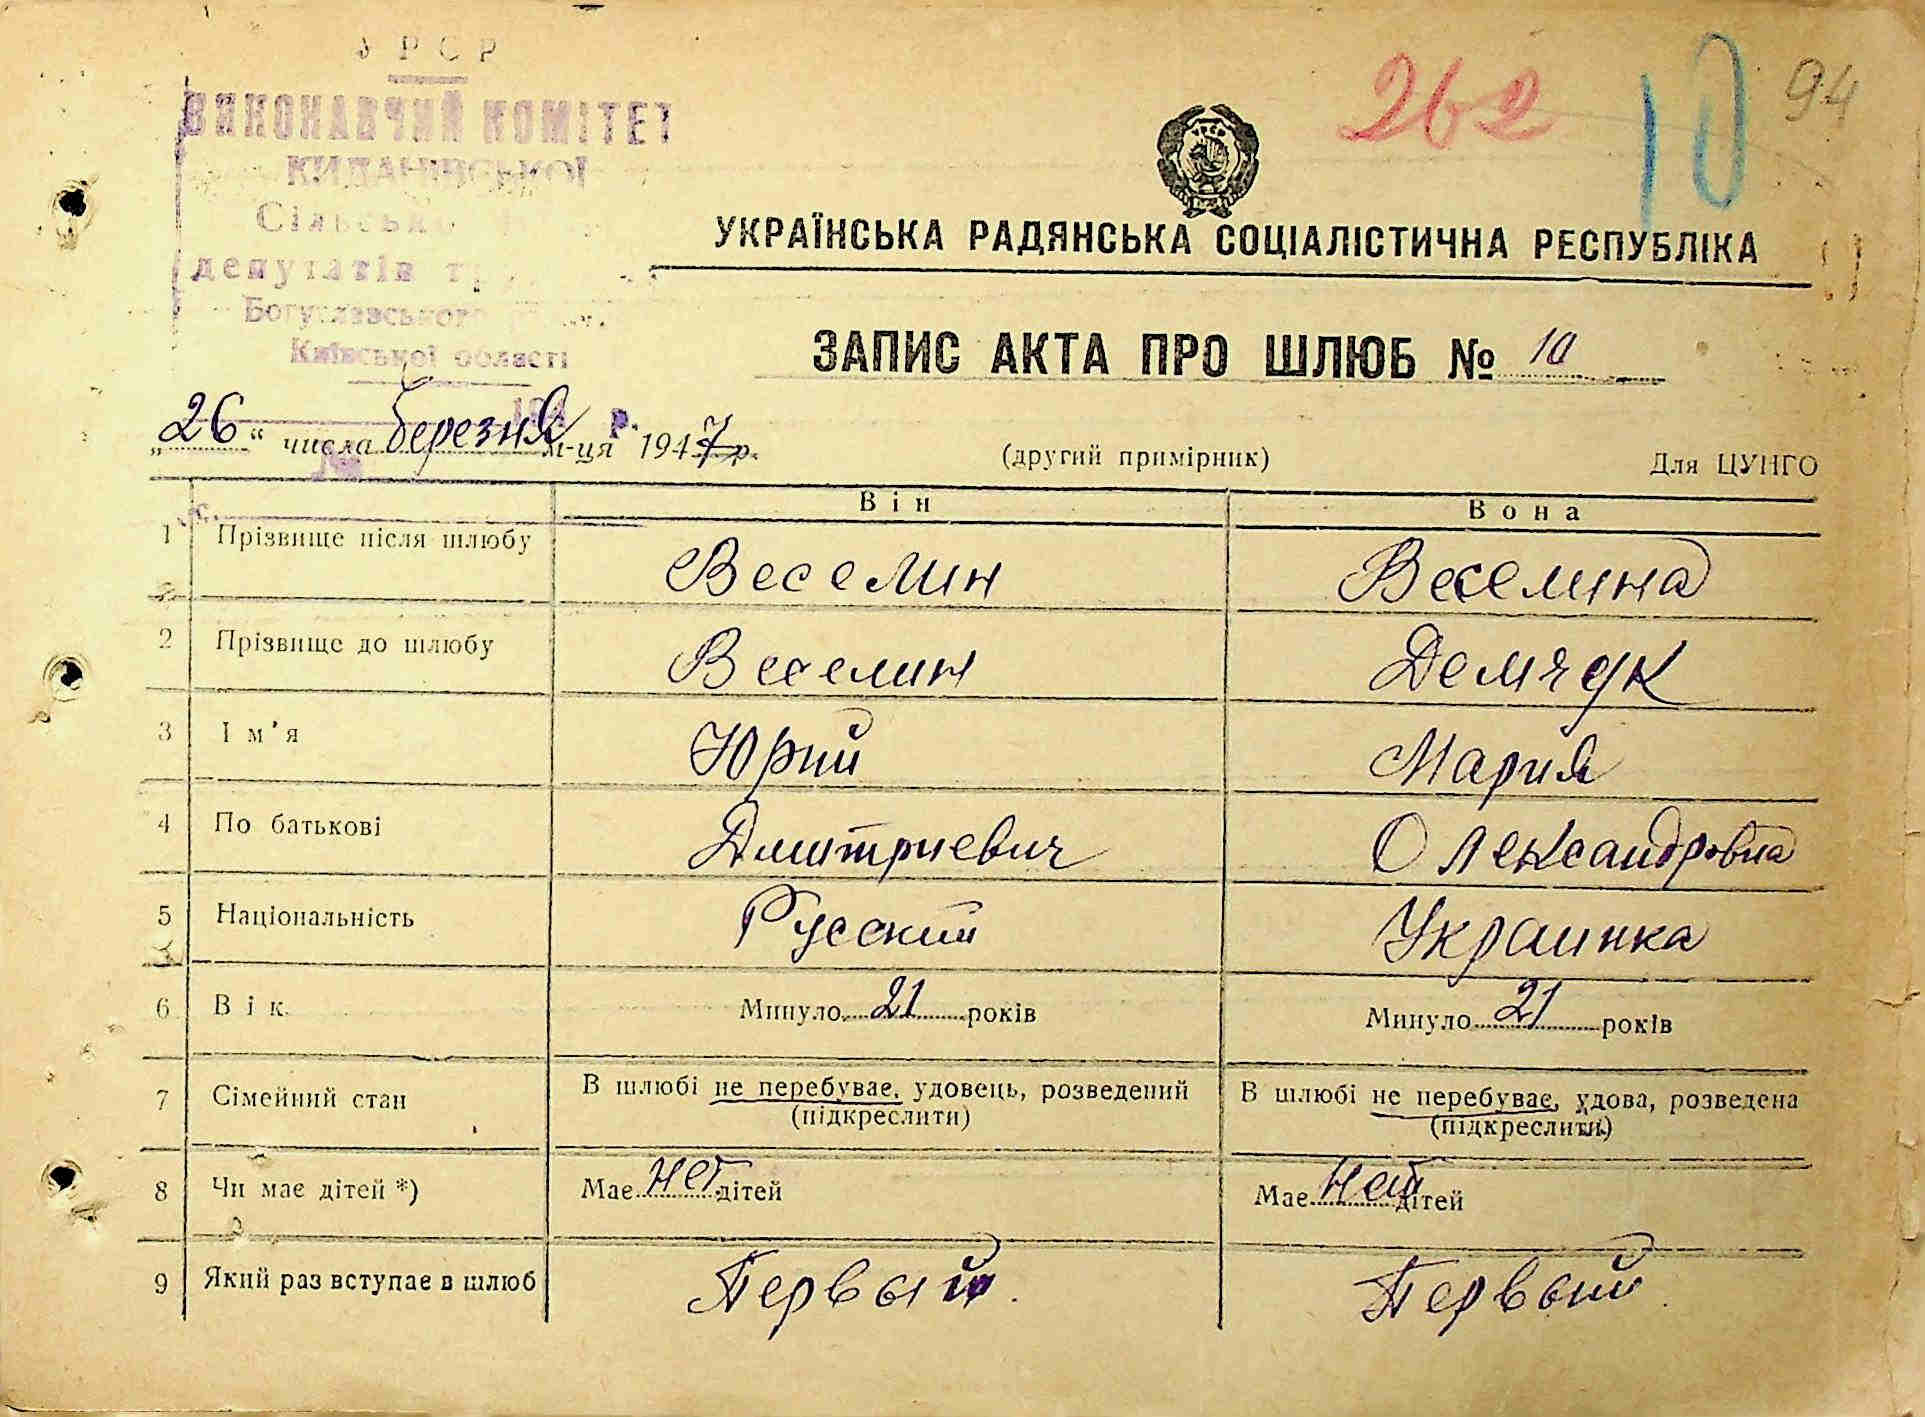 УРСР
ВИКОНАВЧИЙ КОМІТЕТ
КИДАНІВСЬКОЇ
депутатів
Богуславського
Київської області
262
10
94
УКРАЇНСЬКА РАДЯНСЬКА СОЦІАЛІСТИЧНА РЕСПУБЛІКА
ЗАПИС АКТА ПРО ШЛЮБ № 10
„26“ числа березня м-ця 1947 р.
(другий примірник)
Для ЦУНГО
Він Вона
1 Прізвище після шлюбу Веселин Веселина
2 Прізвище до шлюбу Веселин Демчук
3 Ім'я Юрий Мария
4 По батькові Дмитриевич Олександровна
5 Національність Русский Украинка
6 Вік Минуло 21 років Минуло 21 років
7 Сімейний стан В шлюбі не перебуває, удовець, розведений В шлюбі не перебуває, удова, розведена
(підкреслити) (підкреслити)
8 Чи має дітей *) Має нет дітей Має нет дітей
9 Який раз вступає в шлюб Первый. Первый.